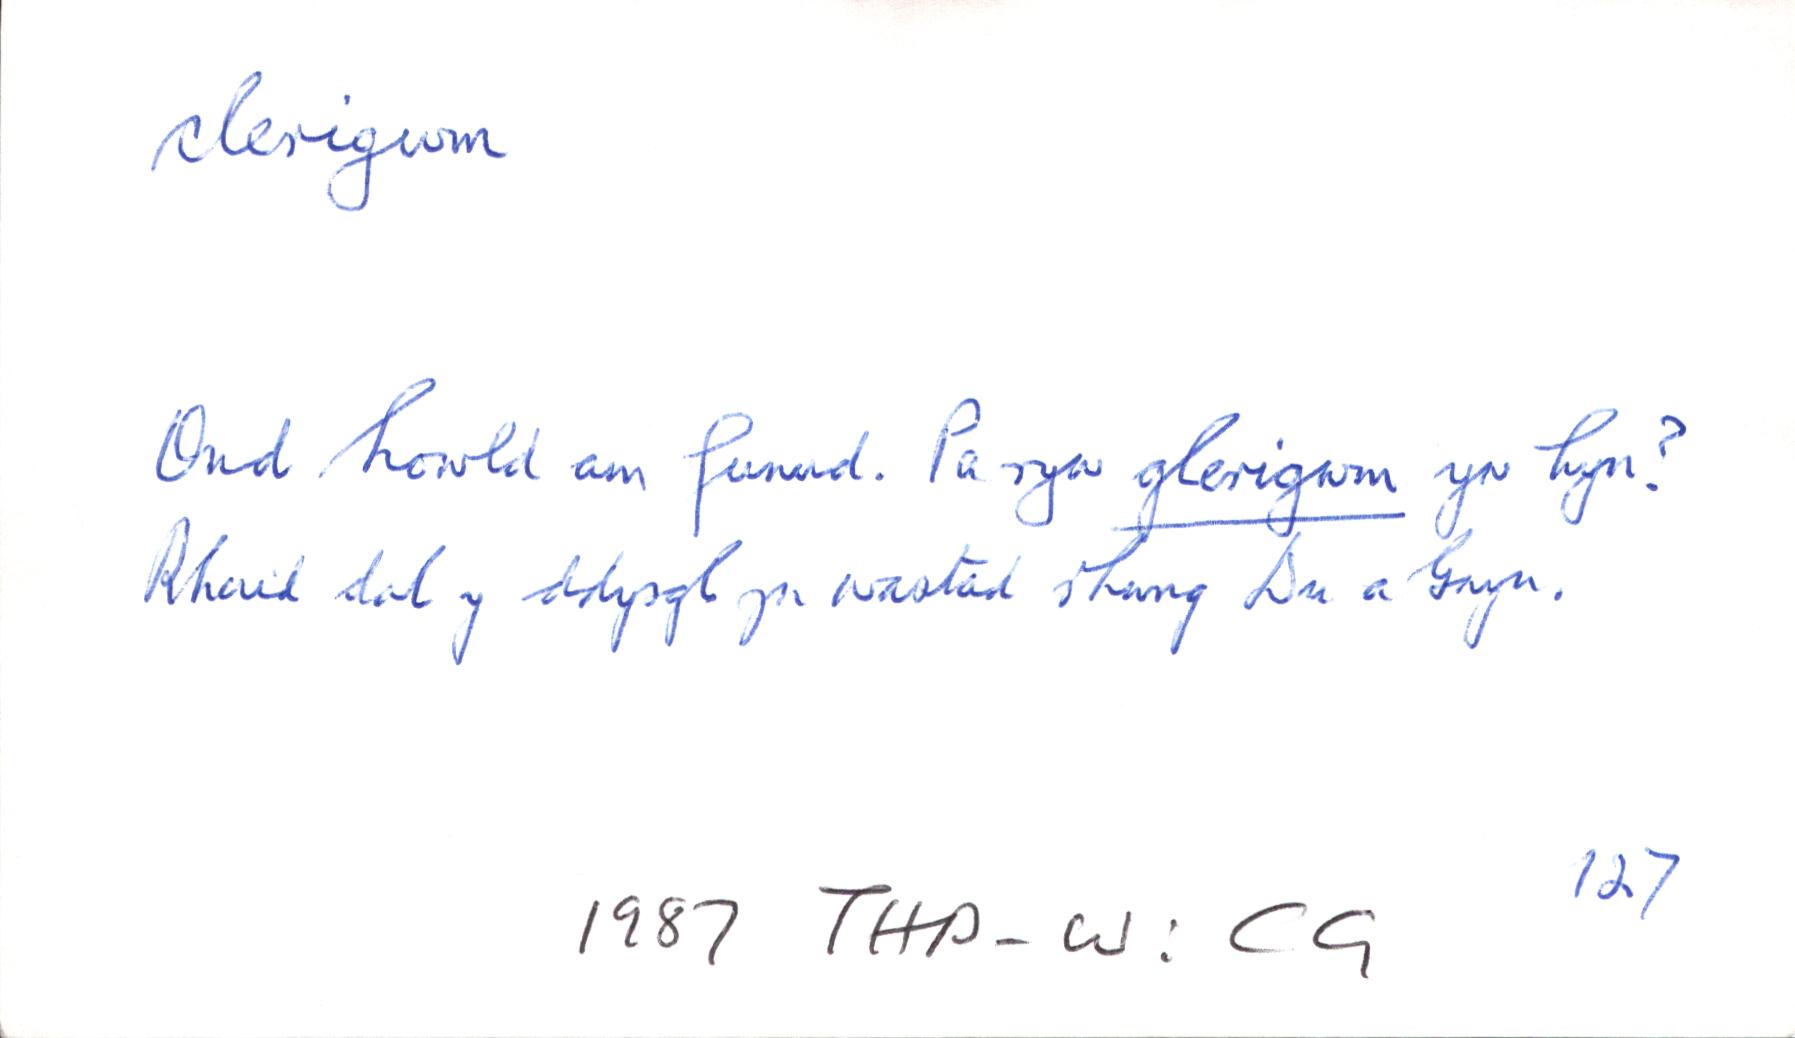 clerigwm
Ond howld am funud. Pa ryw glerigwm yw hyn?
Rhaid dal y ddysgl yn wastad rhwng Du a Gwyn.
127
1987 THP-W: CG